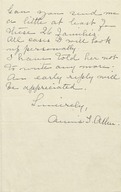 Can you send me
a letter at least for
these 26 families
All cases I will look
up personally.
I have told her not
to write any more.
An early reply will
be appreciated.
Sincerely,
Annie L. Allen.